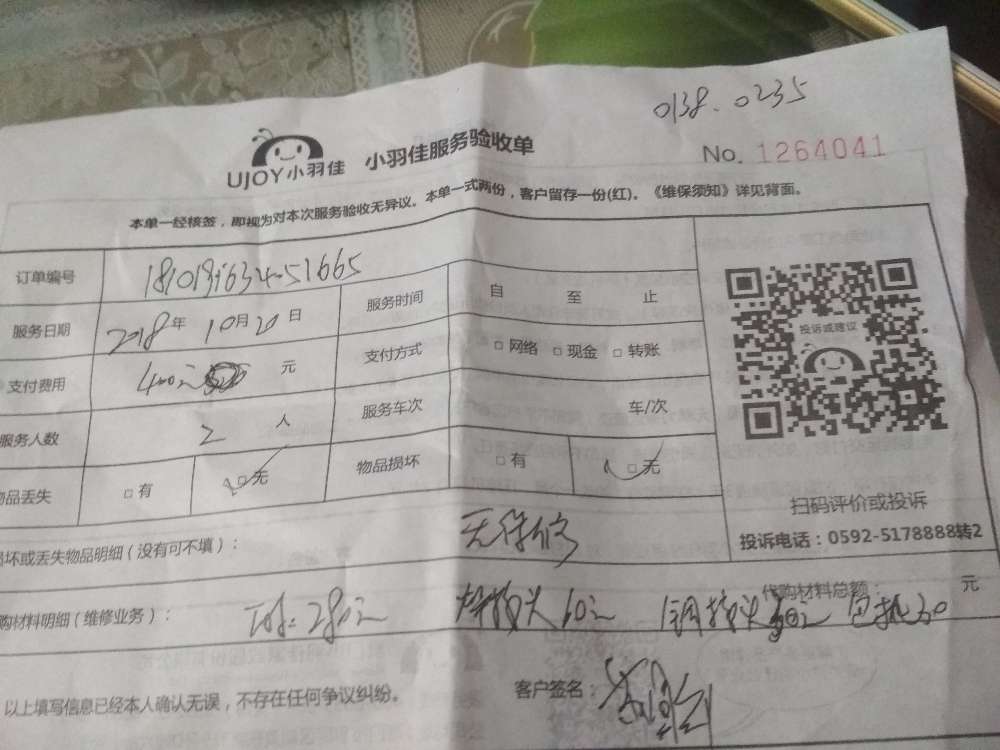 0138.0235
UJOY小羽佳 小羽佳服务验收单
No. 1264041
本单一经核签，即视为对本次服务验收无异议。本单一式两份，客户留存一份(红)。《维保须知》详见背面。
订单编号
服务日期 2018年 10月20日 服务时间 自 至 止
支付费用 400元 元 支付方式 □网络 □现金 □转账
服务人数 2 人 服务车次 车/次
品丢失 □有 □无 物品损坏 □有 □无
投诉或建议
扫码评价或投诉
投诉电话：0592-5178888转2
坏或丢失物品明细（没有可不填）：
代购材料总额： 元
购材料明细（维修业务）： 280元 60元 30
以上填写信息已经本人确认无误，不存在任何争议纠纷。
客户签名：